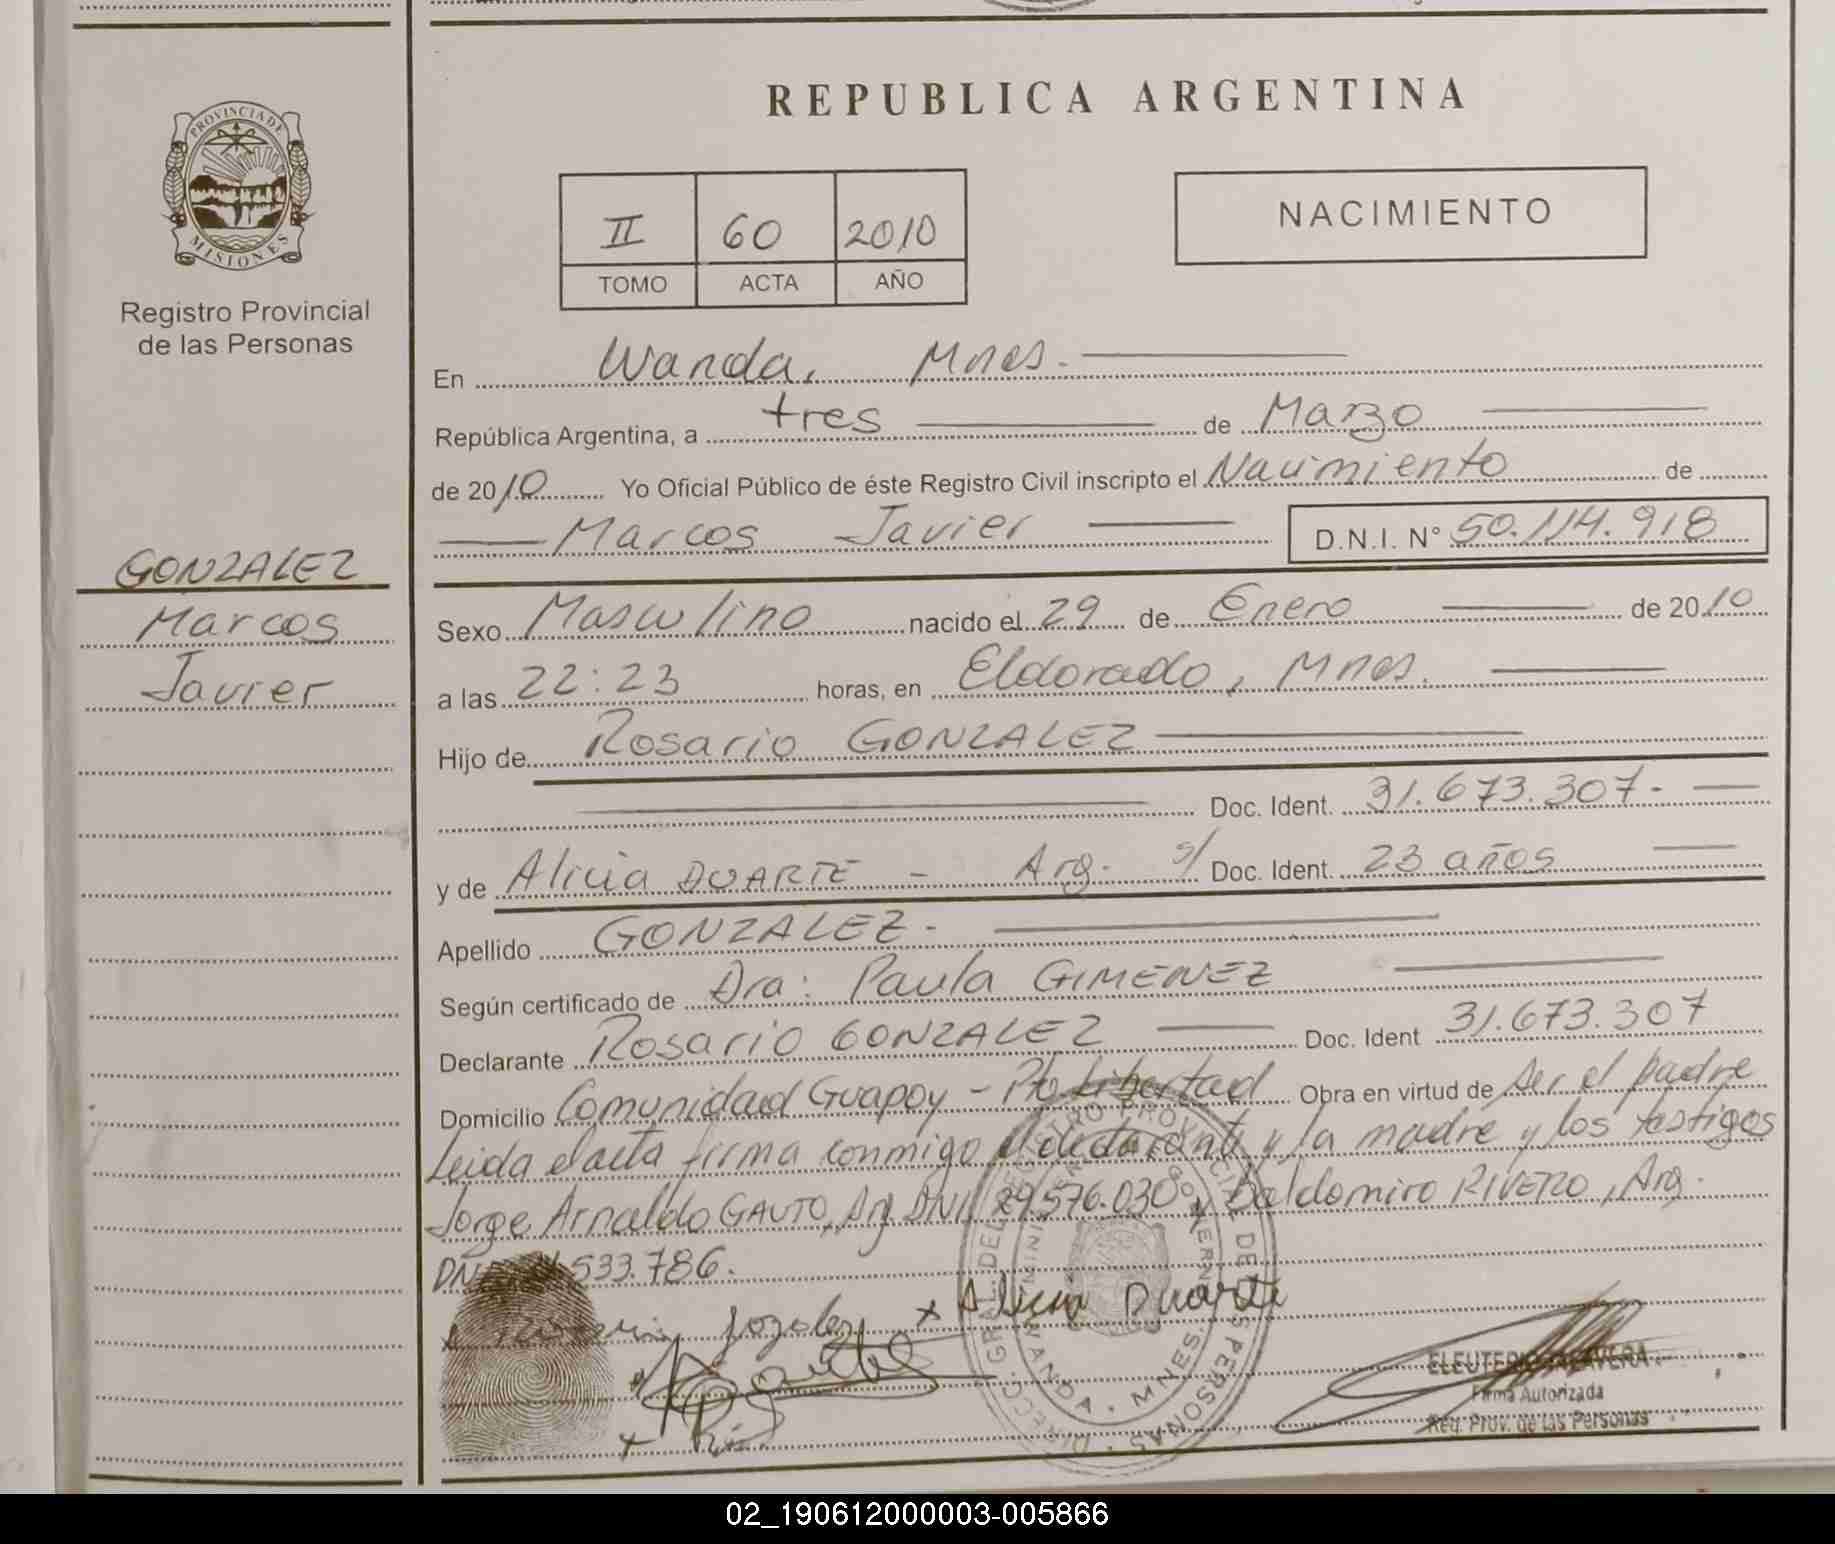 REPUBLICA ARGENTINA
PROVINCIA DE MISIONES
Registro Provincial
de las Personas
II 60 2010
TOMO ACTA AÑO
NACIMIENTO
En Wanda, Mnes.
República Argentina, a tres de Marzo
de 2010 Yo Oficial Público de éste Registro Civil inscripto el Nacimiento de
Marcos Javier D.N.I. N° 50.114.918
GONZALEZ
Marcos
Javier
Sexo Masculino nacido el 29 de Enero de 2010
a las 22:23 horas, en Eldorado, Mnes.
Hijo de Rosario GONZALEZ
Doc. Ident. 31.673.307-
y de Alicia DUARTE - Arg. s/ Doc. Ident. 23 años
Apellido GONZALEZ-
Según certificado de Dra: Paula GIMENEZ
Declarante Rosario GONZALEZ Doc. Ident 31.673.307
Domicilio Comunidad Guapoy - Pto Libertad Obra en virtud de ser el padre
Leida el acta firma conmigo el declarante y la madre y los testigos
Jorge Arnaldo GAUTO, Arg DNI 29.576.030 y Baldomiro RIVERO, Arg.
533.786.
Alicia Duarte
ELEUTERIO TALAVERA
Firma Autorizada
Reg. Prov. de las Personas
WANDA - MNES
02_190612000003-005866